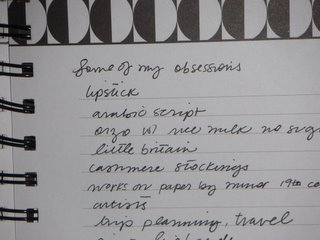 Some of my obsessions
lipstick
arabic script
orzo w/ rice milk no suga
little britain
cashmere stockings
works on paper by minor 19th ce
artists
trip planning, travel